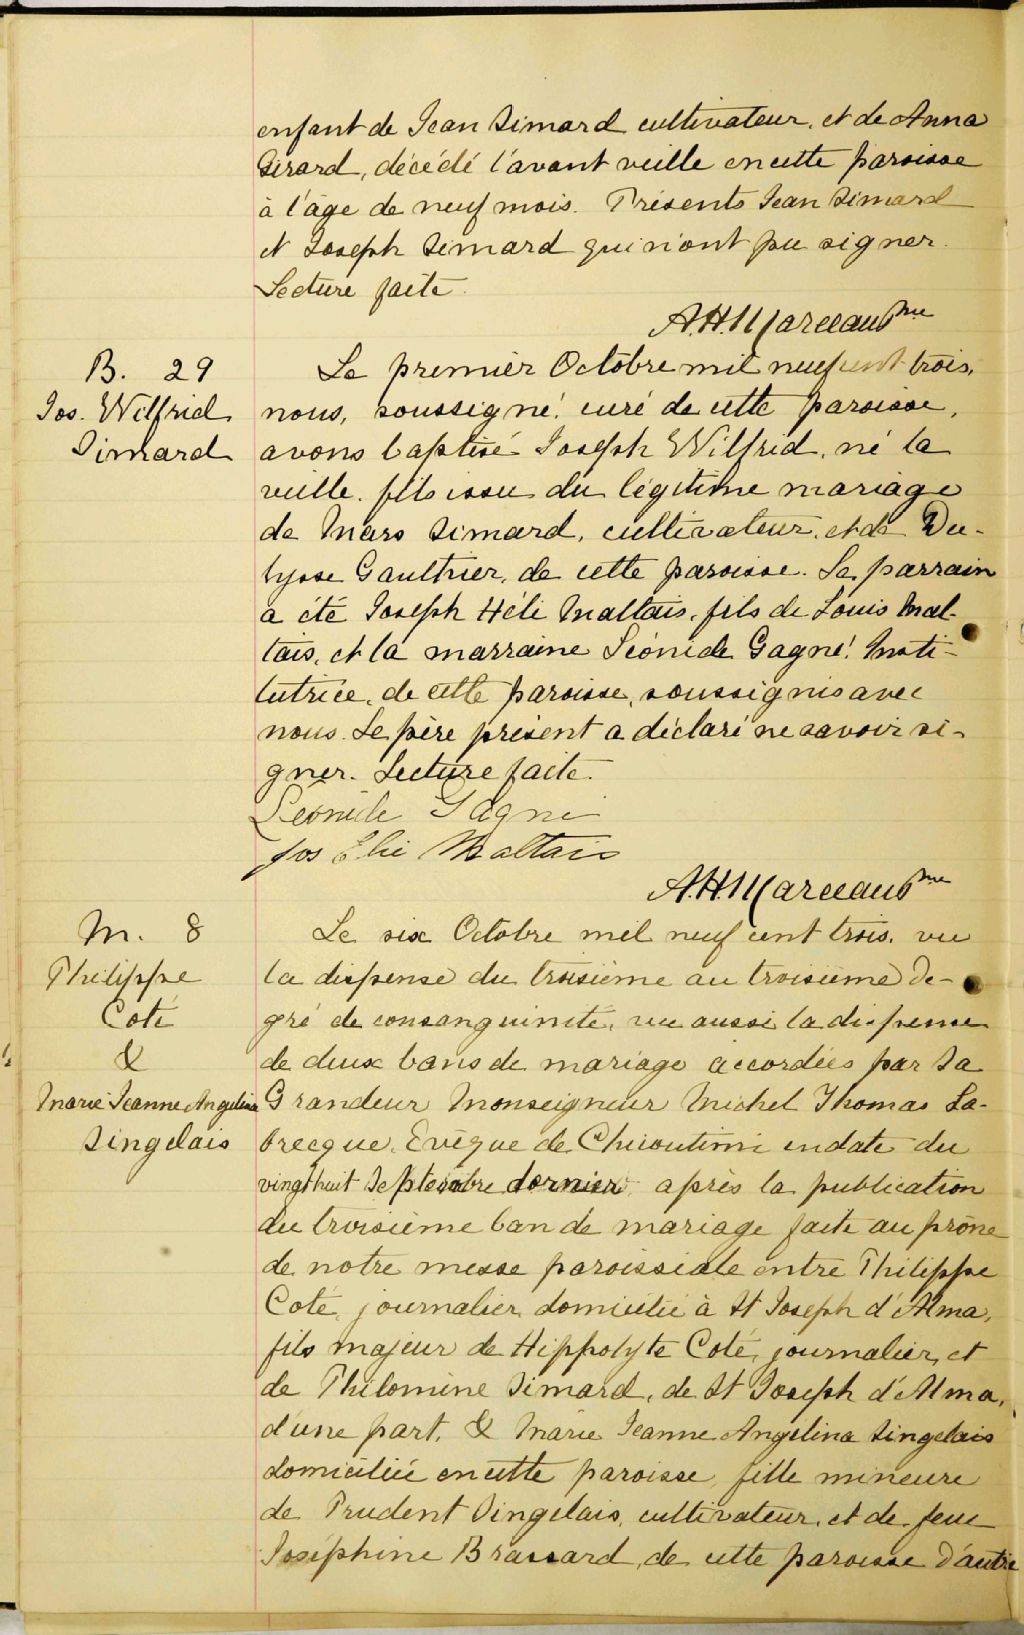 enfant de Jean Simard cultivateur, et de Anna
Girard, décédé l'avant veille en cette paroisse
à l'âge de neuf mois. Présents Jean Simard
et Joseph Simard qui n'ont pu signer.
Lecture faite.
A.H. Marceau Ptre
B. 29
Jos. Wilfrid
Simard
Le premier Octobre mil neuf cent trois,
nous, soussigné, curé de cette paroisse,
avons baptisé Joseph Wilfrid, né la
veille, fils issu du légitime mariage
de Mars Simard, cultivateur, et de De-
lysse Gaulthier, de cette paroisse. Le parrain
a été Joseph Héli Maltais, fils de Louis Mal-
tais, et la marraine Léonide Gagné, Insti-
tutrice, de cette paroisse, soussignés avec
nous. Le père présent a déclaré ne savoir si-
gner. Lecture faite.
Léonide Gagné
Jos Elie Maltais
A.H. Marceau Ptre
M. 8
Philippe
Coté
&
Marie Jeanne Angelina
Singelais
Le six Octobre mil neuf cent trois, vu
la dispense du troisième au troisième de-
gré de consanguinité, vu aussi la dispense
de deux bans de mariage accordées par Sa
Grandeur Monseigneur Michel Thomas La-
brecque, Evêque de Chicoutimi en date du
vingt huit Septembre dernier, après la publication
du troisième ban de mariage faite au prône
de notre messe paroissiale entre Philippe
Coté, journalier, domicilié à St Joseph d'Alma,
fils majeur de Hippolyte Coté, journalier, et
de Philomène Simard, de St Joseph d'Alma,
d'une part, & Marie Jeanne Angelina Singelais
domiciliée en cette paroisse, fille mineure
de Prudent Singelais, cultivateur, et de feue
Joséphine Brassard, de cette paroisse d'autre